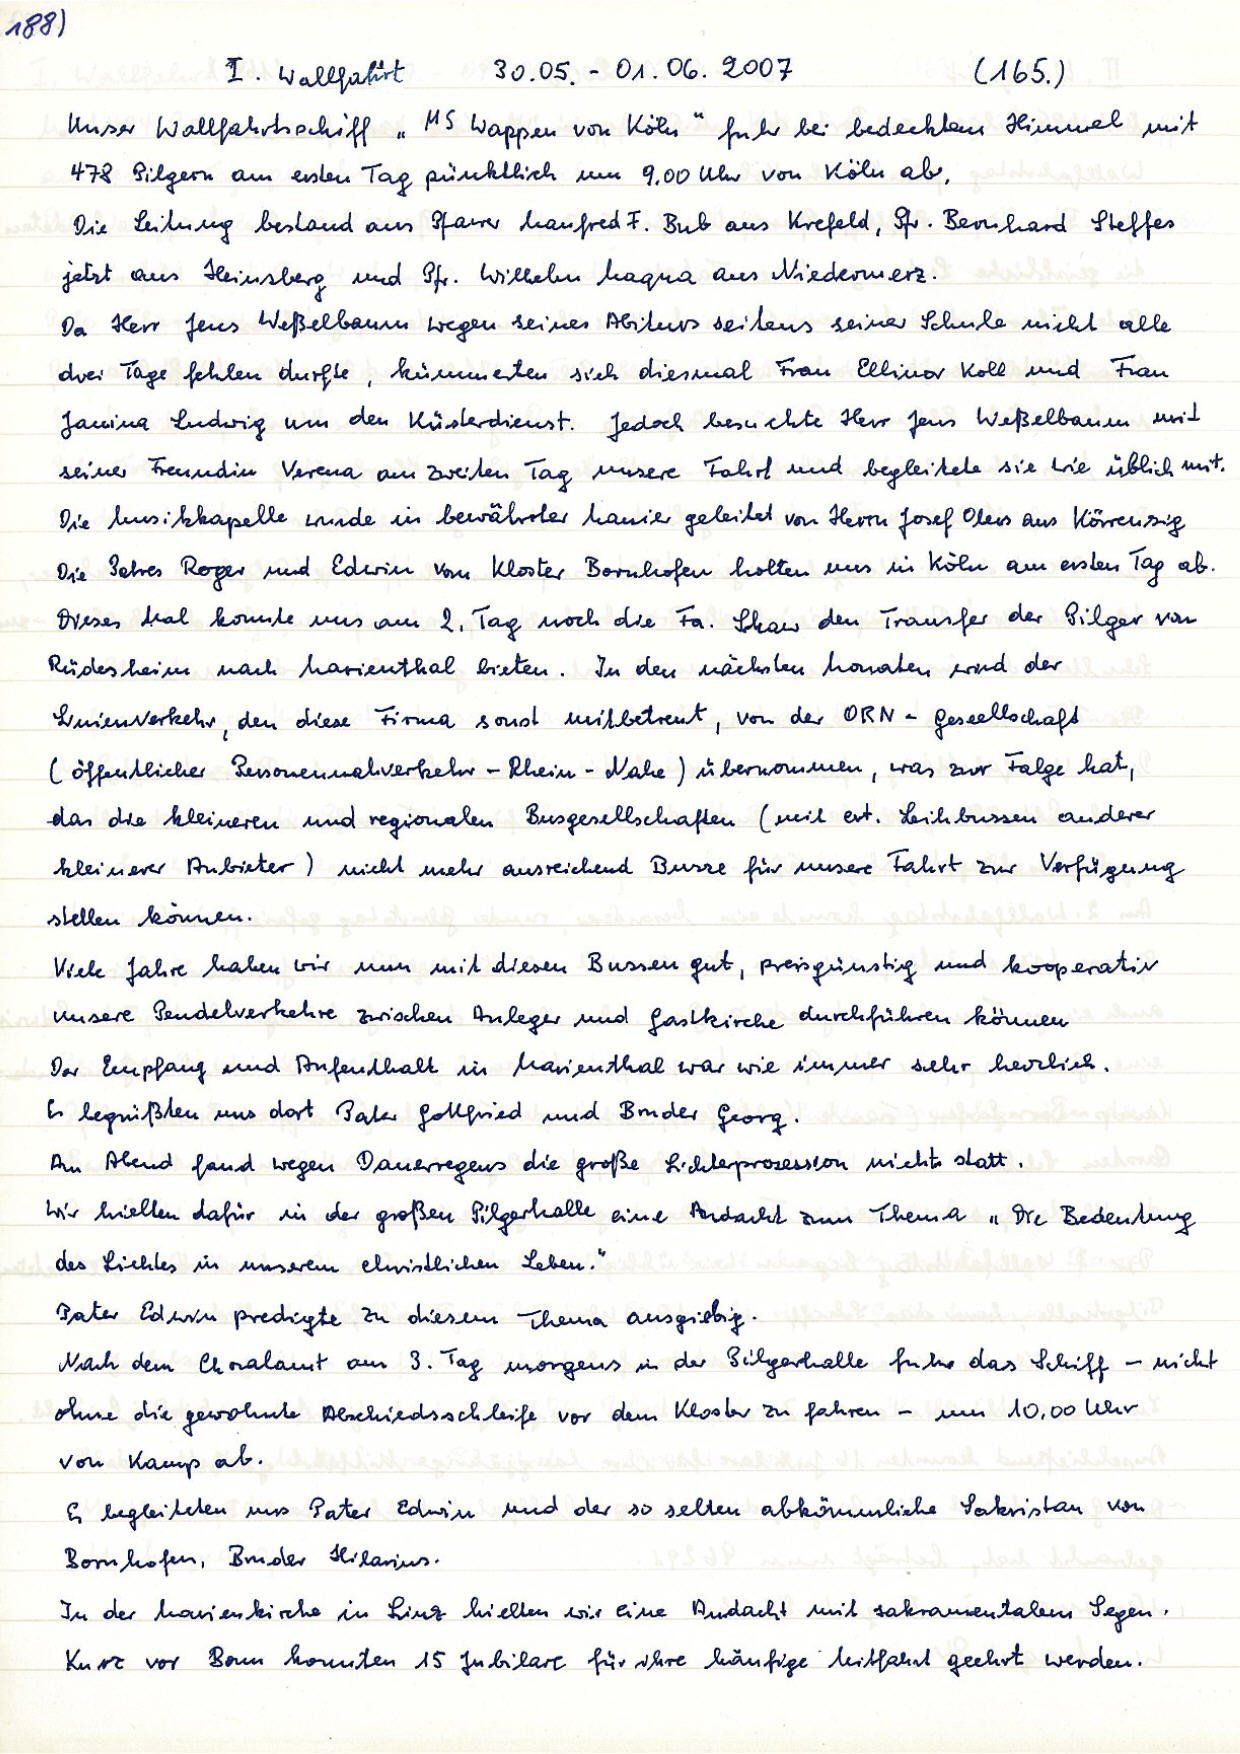 188)
I. Wallfahrt 30.05. - 01.06. 2007 (165.)
Unser Wallfahrtsschiff „MS Wappen von Köln" fuhr bei bedecktem Himmel mit
478 Pilgern am ersten Tag pünktlich um 9.00 Uhr von Köln ab.
Die Leitung bestand aus Pfarrer Manfred F. Bub aus Krefeld, Pfr. Bernhard Steffes
jetzt aus Heinsberg und Pfr. Wilhelm Maqua aus Niedermerz.
Da Herr Jens Weßelbaum wegen seines Abiturs seitens seiner Schule nicht alle
drei Tage fehlen durfte, kümmerten sich diesmal Frau Ellinor Koll und Frau
Janina Ludwig um den Küsterdienst. Jedoch besuchte Herr Jens Weßelbaum mit
seiner Freundin Verena am zweiten Tag unsere Fahrt und begleitete sie wie üblich mit.
Die Musikkapelle wurde in bewährter Manier geleitet von Herrn Josef Olers aus Körrenzig
Die Patres Roger und Edwin vom Kloster Bornhofen holten uns in Köln am ersten Tag ab.
Dieses Mal konnte uns am 2. Tag noch die Fa. den Transfer der Pilger von
Rüdesheim nach Marienthal bieten. In den nächsten Monaten wird der
Linienverkehr, den diese Firma sonst mitbetreut, von der ORN - Gesellschaft
(öffentlicher Personennahverkehr - Rhein - Nahe) übernommen, was zur Folge hat,
das die kleineren und regionalen Busgesellschaften (mit evt. Leihbussen anderer
kleinerer Anbieter) nicht mehr ausreichend Busse für unsere Fahrt zur Verfügung
stellen können.
Viele Jahre haben wir nun mit diesen Bussen gut, preisgünstig und kooperativ
unsere Pendelverkehre zwischen Anleger und Gastkirche durchführen können
Der Empfang und Aufenthalt in Marienthal war wie immer sehr herzlich.
Es begrüßten uns dort Pater Gottfried und Bruder Georg.
Am Abend fand wegen Dauerregens die große Lichterprozession nicht statt.
Wir hielten dafür in der großen Pilgerhalle eine Andacht zum Thema „Die Bedeutung
des Lichtes in unserem christlichen Leben."
Pater Edwin predigte zu diesem Thema ausgiebig.
Nach dem Choralamt am 3. Tag morgens in der Pilgerhalle fuhr das Schiff - nicht
ohne die gewohnte Abschiedsschleife vor dem Kloster zu fahren - um 10.00 Uhr
von Kamp ab.
Es begleiteten uns Pater Edwin und der so selten abkömmliche Sakristan von
Bornhofen, Bruder Hilarius.
In der Marienkirche in Linz hielten wir eine Andacht mit sakramentalem Segen.
Kurz vor Bonn konnten 15 Jubilare für ihre häufige Mitfahrt geehrt werden.